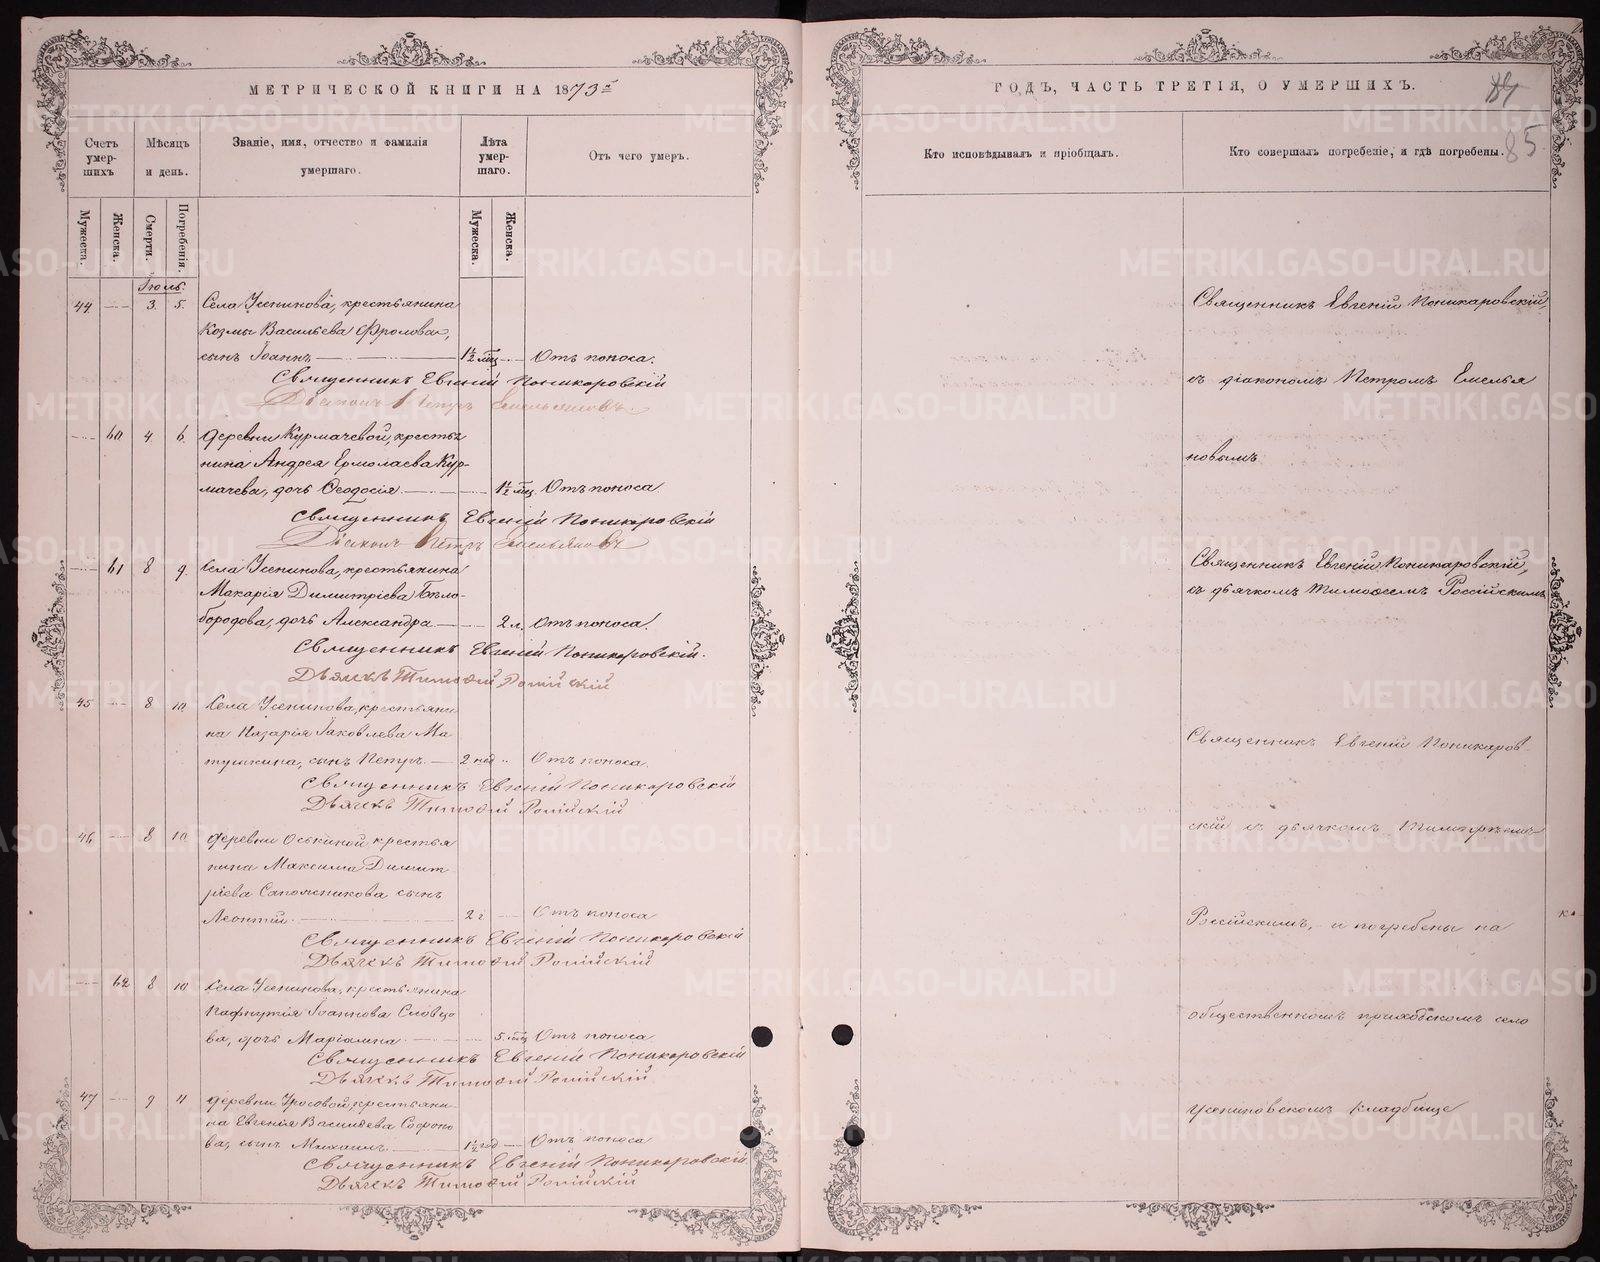 МЕТРИЧЕСКОЙ КНИГИ НА 1873й
Счетъ умер- шихъ
Мѣсяцъ и день.
Званіе, имя, отчество и фамилія умершаго.
Лѣта умер- шаго.
Отъ чего умеръ.
Мужеска.
Женска.
Смерти.
Погребенія.
Мужеска.
Женска.
Іюль.
44 3. 5. Села Усенинова, крестьянина
Козмы Васильева Фролова,
сынъ Іоаннъ 1½ мц Отъ поноса.
Священникъ Евгеній Поникаровскій
Діаконъ Петръ Емельяновъ.
60 4 6. деревни Курмачевой, крестья
нина Андрея Ермолаева Кур-
мачева, дочь Ѳеодосія 1½ мц. Отъ поноса.
Священникъ Евгеній Поникаровскій
Діаконъ Петръ Емельяновъ
61 8 9. Села Усенинова, крестьянина
Макарія Димитріева Бѣло-
бородова, дочь Александра 2 л. Отъ поноса.
Священникъ Евгеній Поникаровскій.
Дьячекъ Тимоѳей Россійскій
45 8 10. Села Усенинова, крестьяни
на Назарія Іаковлева Ма
тушкина, сынъ Петръ 2 нед Отъ поноса.
Священникъ Евгеній Поникаровскій
Дьячекъ Тимоѳей Россійскій
46 8 10 деревни Оськиной крестья
нина Максима Димит
ріева Сапожникова сынъ
Леонтій 2 г Отъ поноса
Священникъ Евгеній Поникаровскій
Дьячекъ Тимоѳей Россійскій
62 8 10 Села Усенинова, крестьянина
Пафнутія Іоаннова Словцо
ва, дочь Маріамна 5. мц Отъ поноса
Священникъ Евгеній Поникаровскій
Дьячекъ Тимоѳей Россійскій.
47 9 11 деревни Уросовой, крестьяни-
на Евгенія Васильева Софроно
ва, сынъ Михаилъ 1½ год Отъ поноса
Священникъ Евгеній Поникаровскій
Дьячекъ Тимоѳей Россійскій
ГОДЪ, ЧАСТЬ ТРЕТІЯ, О УМЕРШИХЪ.
84
85
Кто исповѣдывалъ и пріобщалъ.
Кто совершалъ погребеніе, и гдѣ погребены.
Священникъ Евгеній Поникаровскій,
съ діакономъ Петромъ Емелья
новымъ
Священникъ Евгеній Поникаровскій,
съ дьячкомъ Тимоѳеемъ Россійскимъ
Священникъ Евгеній Поникаров-
скій съ дьячкомъ Тимоѳеемъ
Россійскимъ, и погребены на
общественномъ приходскомъ село
Усениновскомъ кладбище
METRIKI.GASO-URAL.RU